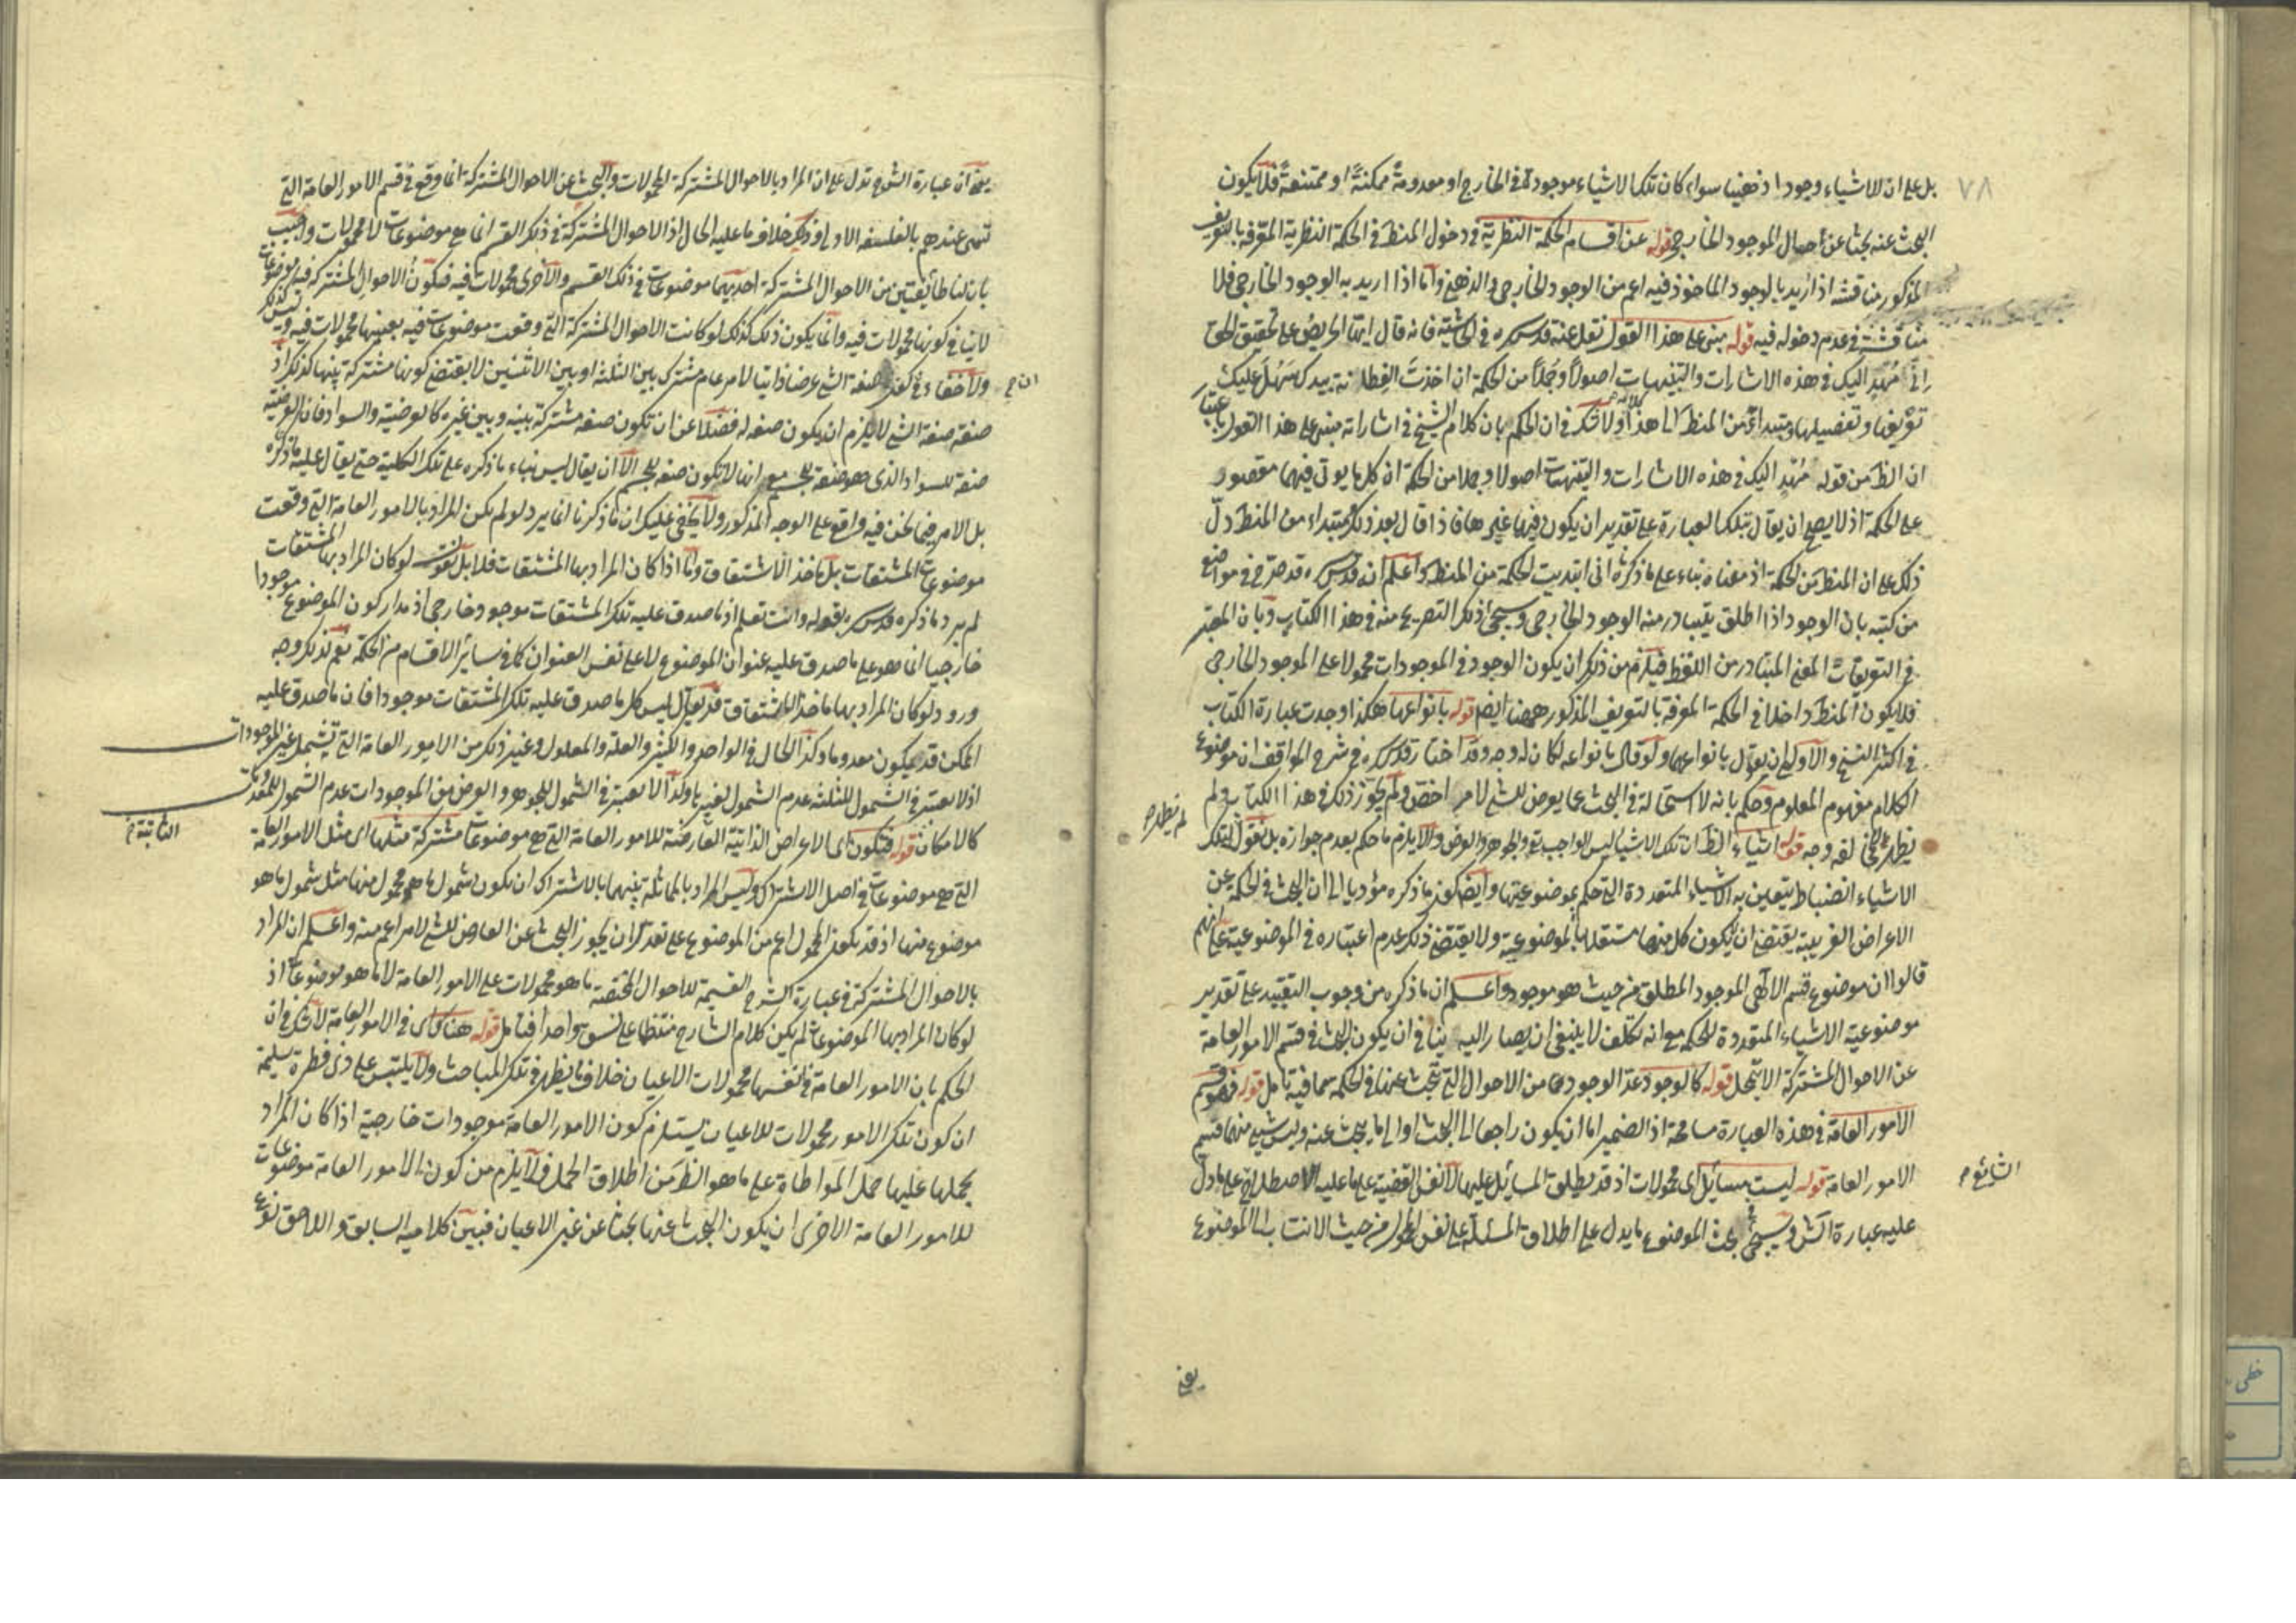 ٧٨
بل على ان للاشياء وجودا ذهنيا سواء كان تلك الاشياء موجودة فى الخارج او معدومة ممكنة او ممتنعة فلا يكون
البحث عنه بحثا عن احوال الموجود الخارجى قوله عن اقسام الحكمة النظرية فى دخول المنطق فى الحكمة النظرية المعرفة بالتعريف
المذكور مناقشة اذا اريد بالوجود الماخوذ فيه اعم من الوجود الخارجى والذهنى واما اذا اريد به الوجود الخارجى فلا
مناقشة فى عدم دخوله فيه قوله مبنى على هذا القول نقل عنه قدس سره فى الحاشية فانه قال ايها الحريص على تحقيق الحق
انى مُهدٍ اليك فى هذه الاشارات والتنبيهات اصولاً وجُملاً من الحكمة ان اخذتَ الفطانة بيدك سَهُل عليك
تفريعها وتفصيلها ومبتدئ من المنطق الى هذا كلامه ولا شك فى ان الحكم بان كلام الشيخ فى اشاراته مبنى على هذا القول باعتبار
ان الظ من قوله مُهدٍ اليك فى هذه الاشارات والتنبيهات اصولا وجملا من الحكمة ان كل ما يوتى فيهما مقصور
على الحكمة اذ لا يصح ان يقال بتلك العبارة على تقدير ان يكون فيها غيرها فاذا قال بعد ذلك ومبتداء من المنطق دلّ
ذلك على ان المنطق من الحكمة اذ معناه بناء على ما ذكره انى ابتديت الحكمة من المنطق واعلم انه قدس سره قد صرح فى مواضع
من كتبه بان الوجود اذا اطلق يتبادر منه الوجود الخارجى وسيجئ اذ ذكر التصريح منه فى هذا الكتاب وبان المعتبر
فى التعريفات المعنى المتبادر من اللفظ فيلزم من ذلك ان يكون الوجود فى الموجودات محمولا على الموجود الخارجى
فلا يكون المنطق داخلا فى الحكمة المعرفة بالتعريف المذكور ههنا ايضا قوله بانواعها هكذا وجدت عبارة الكتاب
فى اكثر النسخ والاولى ان يقول بانواعهما ولو قال بانواعه لكان له وجه وقد اختار قدس سره فى شرح المواقف ان موضوع
الكلام مفهوم المعلوم وحكم بانه لا استحالة فى البحث عما يعرض للشئ لامر اخص ولم يجوّز ذلك فى هذا الكتاب ولم
يظهر لمخالفه وجه قوله اشياء الظ ان تلك الاشياء ليس الواجب تع والجوهر والعرض والا يلزم ما حكم بعدم جوازه بل نقول لتلك
لم يظهر
الاشياء انضباط يتعين به الاشياء المتعددة التى حكم بموضوعيتها وايضا كون ما ذكره مؤديا الى ان البحث فى الحكمة عن
الاعراض الغريبة يقتضى ان يكون كل منها مستقلا بالموضوعية ولا يقتضى ذلك عدم اعتباره فى الموضوعية على انهم
قالوا ان موضوع قسم الالهى الموجود المطلق من حيث هو موجود واعلم ان ما ذكره من وجوب التقييد على تقدير
موضوعية الاشياء المتعددة للحكمة مع انه تكلف لا ينبغى ان يصار اليه ينافى ان يكون البحث فى قسم الامور العامة
عن الاحوال المشتركة الا بتمحل قوله كالوجود عدّ الوجود مما من الاحوال التى تبحث عنها فى الحكمة مما فيه تامل قوله فهو قسم
الامور العامة فى هذه العبارة مسامحة اذ الضمير اما ان يكون راجعا الى البحث او الى ما يبحث عنه وليس شئ منهما قسم
الامور العامة قوله ليست بمسائل اى محمولات اذ قد يطلق المسائل عليها لا نفس القضية على ما عليه الاصطلاح على ما دلّ
الشائع
عليه عبارة الش وسيجئ فى بحث الموضوع ما يدل على اطلاق المسئلة على نفس المحمول من حيث الانتساب الى الموضوع
يعنى
يعنى ان عبارة الشرح تدل على ان المراد بالاحوال المشتركة المحمولات والبحث عن الاحوال المشتركة انما وقع فى قسم الامور العامة التى
تسمى عندهم بالفلسفة الاولى وذلك خلاف ما عليه الحال اذ الاحوال المشتركة فى ذلك القسم انما هى موضوعات لا محمولات واجيب
بان لنا طائفتين من الاحوال المشتركة احديهما موضوعات فى ذلك القسم والاخرى محمولات فيه فيكون الاحوال المشتركة فيه موضوعات
لا ينافى كونها محمولات فيه وانما يكون ذلك كذلك لو كانت الاحوال المشتركة التى وقعت موضوعات فيه بعينها محمولات فيه وليس كذلك
ولا خفاء فى كون صفة الشئ عرضا ذاتيا لامر عام مشترك بين الثلثة او بين الاثنين لا يقتضى كونها مشتركة بينها كذلك اذ
صفة صفة الشئ لا يلزم ان يكون صفة له فضلا عن ان تكون صفة مشتركة بينه وبين غيره كالعرضية والسواد فان العرضية
صفة للسواد الذى هو صفة للجسم مع انها لا تكون صفة للجسم الا ان يقال ليس بناء ما ذكره على تلك الكلية حتى يقال عليه ما ذكره
بل الامر فيما نحن فيه واقع على الوجه المذكور ولا يخفى عليك ان ما ذكرنا انما يرد لو لم يكن المراد بالامور العامة التى وقعت
موضوعات المشتقات بل ماخذ الاشتقاق واما اذا كان المراد بها المشتقات فلا بل نقول لو كان المراد بها المشتقات
لم يرد ما ذكره قدس سره بقوله وانت تعلم اذ ما صدق عليه تلك المشتقات موجود خارجى اذ مدار كون الموضوع موجودا
خارجيا انما هو على ما صدق عليه عنوان الموضوع لا على نفس العنوان كما فى سائر الاقسام من الحكمة نعم لذلك وجه
ورود لو كان المراد بها ماخذ الاشتقاق قد يقال ليس كل ما صدق عليه تلك المشتقات موجودا فان ما صدق عليه
الممكن قد يكون معدوما وكذا الحال فى الواحد والكثير والعلة والمعلول وغير ذلك من الامور العامة التى تشتمل غير الموجودات
اذ لا يعتبر فى الشمول للثلثة عدم الشمول لغيرها وكذا لا يعتبر فى الشمول للجوهر والعرض من الموجودات عدم الشمول للمعدومات
كالامكان قوله فتكون اى الاعراض الذاتية العارضة للامور العامة التى هى موضوعات مشتركة مثلها اى مثل الامور العامة
الثابتة
التى هى موضوعات فى اصل الاشتراك وليس المراد بالمماثلة بينهما بالاشتراك ان يكون شمول ما هو محمول منها مثل شمول ما هو
موضوع منها اذ قد يكون المحمول اعم من الموضوع على تقدير ان يجوز البحث عن العارض للشئ لامر اعم منه واعلم ان المراد
بالاحوال المشتركة فى عبارة الشرح القسيمة للاحوال المختصة ما هو محمولات على الامور العامة لا ما هو موضوعات اذ
لو كان المراد بها الموضوعات لم يكن كلام الشارح منتظما على نسق واحد فتامل قوله هناك اى فى الامور العامة لا شك فى ان
الحكم بان الامور العامة فى نفسها محمولات الاعيان خلاف ما يظهر فى تلك المباحث ولا يلتبس على ذى فطرة سليمة
ان كون تلك الامور محمولات للاعيان يستلزم كون الامور العامة موجودات خارجية اذا كان المراد
بحملها عليها حمل المواطاة على ما هو الظ من اطلاق الحمل فلا يلزم من كون الامور العامة موضوعات
للامور العامة الاخرى ان يكون البحث عنها بحثا عن غير الاعيان فبين كلاميه السابق واللاحق نوع